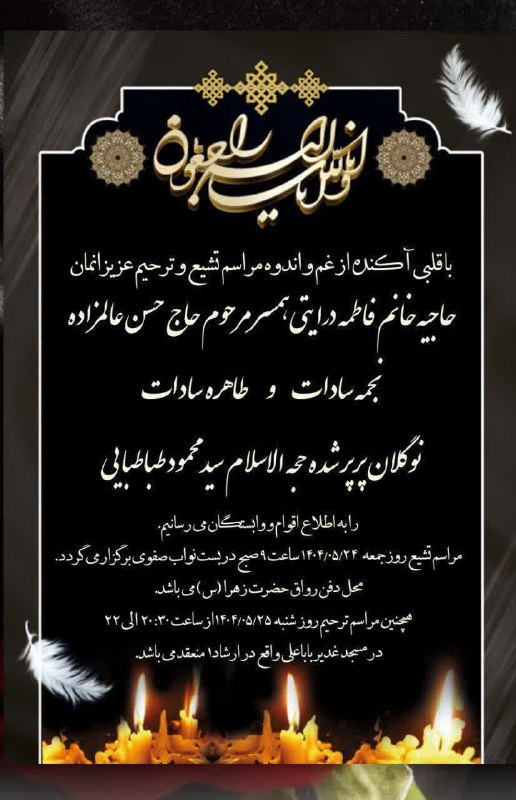 انا لله و انا الیه راجعون
با قلبی آکنده از غم و اندوه مراسم تشیع و ترحیم عزیزانمان
حاجیه خانم فاطمه درایتی همسر مرحوم حاج حسن عالمزاده
نجمه سادات و طاهره سادات
نوگلان پرپر شده حجه الاسلام سید محمود طباطبایی
را به اطلاع اقوام و وابستگان می رسانیم.
مراسم تشیع روز جمعه ۱۴۰۴/۰۵/۲۴ ساعت ۹ صبح در بست نواب صفوی برگزار می گردد.
محل دفن رواق حضرت زهرا (س) می باشد.
همچنین مراسم ترحیم روز شنبه ۱۴۰۴/۰۵/۲۵ از ساعت ۲۰:۳۰ الی ۲۲
در مسجد غدیر باباعلی واقع در ارشاد۱ منعقد می باشد.